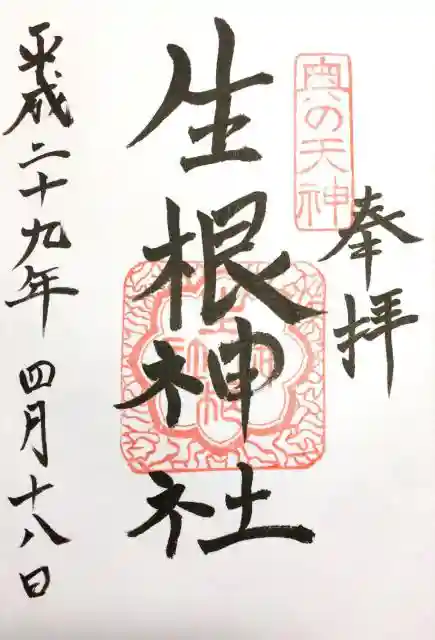 奥の天神
奉拝
生根神社
平成二十九年四月十八日